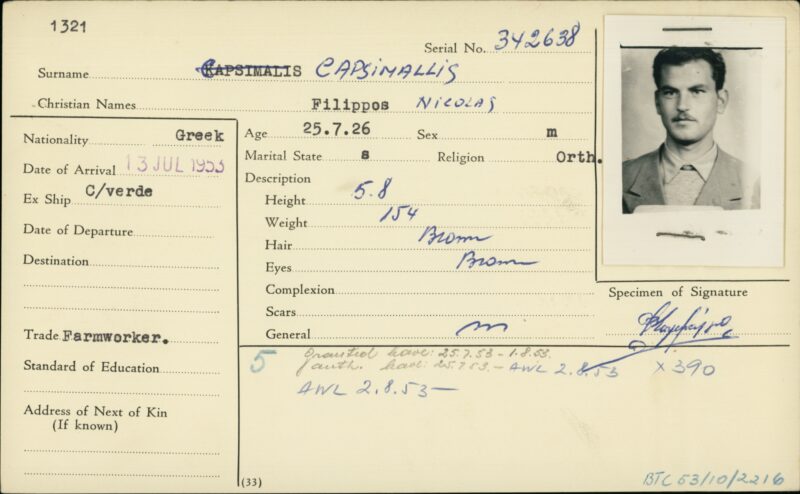 1321
Serial No. 342638
Surname KAPSIMALIS CAPSIMALLIS
Christian Names Filippos NICOLAS
Nationality Greek
Date of Arrival 13 JUL 1953
Ex Ship C/verde
Date of Departure
Destination
Trade Farmworker.
Standard of Education
Address of Next of Kin
(If known)
Age 25.7.26 Sex m
Marital State s Religion Orth.
Description
Height 5.8
Weight 154
Hair Brown
Eyes Brown
Complexion
Scars
General
Specimen of Signature
5 Granted leave: 25.7.53 - 1.8.53.
auth. leave: 25.7.53. - AWL 2.8.53 x390
AWL 2.8.53 —
(33)
BTC 53/10/2216